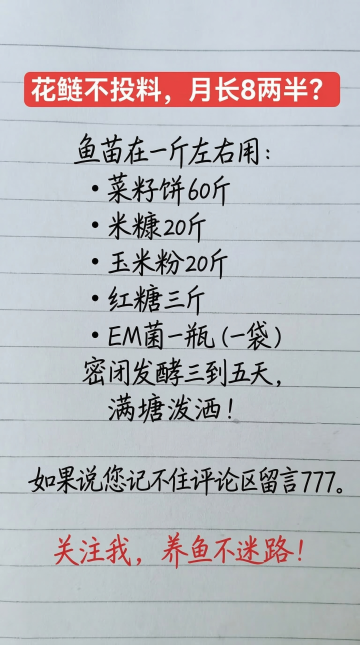 花鲢不投料，月长8两半？
鱼苗在一斤左右用：
•菜籽饼60斤
•米糠20斤
•玉米粉20斤
•红糖三斤
•EM菌一瓶(一袋)
密闭发酵三到五天，
满塘泼洒！
如果说您记不住评论区留言777。
关注我，养鱼不迷路！